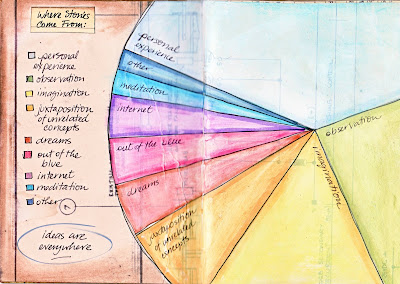 Where Stories
Come From:
personal
experience
observation
imagination
juxtaposition
of unrelated
concepts
dreams
out of the
blue
internet
meditation
other
ideas are
everywhere
personal
experience
other
meditation
internet
out of the blue
dreams
juxtaposition
of unrelated
concepts
imagination
observation